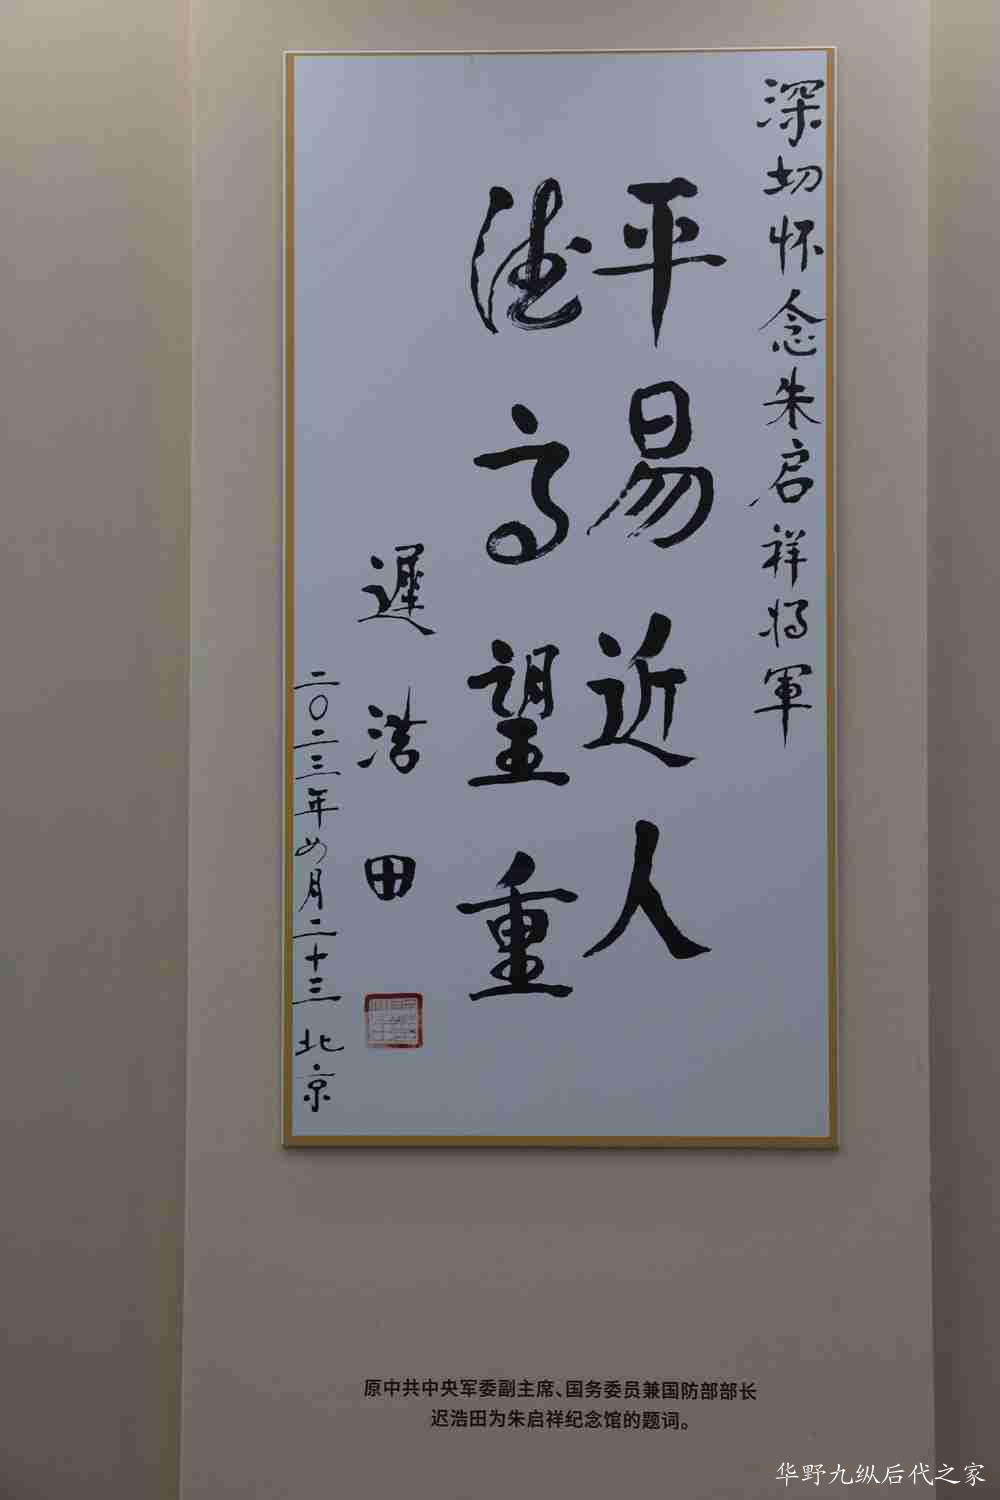 深切怀念朱启祥将軍
平易近人
德高望重
遲浩田
二〇二三年四月二十三北京
原中共中央军委副主席、国务委员兼国防部部长
迟浩田为朱启祥纪念馆的题词。
华野九纵后代之家